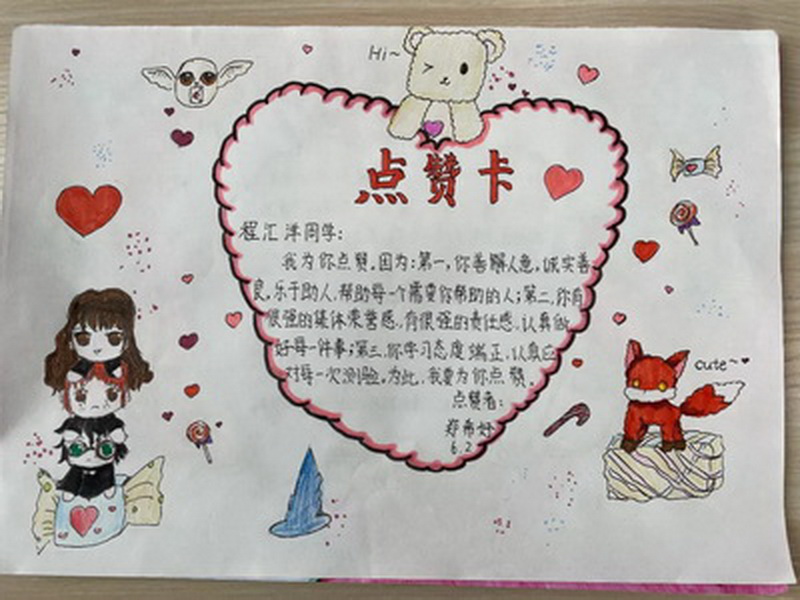 Hi~
点赞卡
程汇洋同学:
我为你点赞。因为:第一,你善解人意,诚实善
良,乐于助人,帮助每一个需要你帮助的人;第二,你有
很强的集体荣誉感,有很强的责任感,认真做
好每一件事;第三,你学习态度端正,认真应
对每一次测验,为此,我要为你点赞。
cute~
点赞者:
郑希妤
6.2